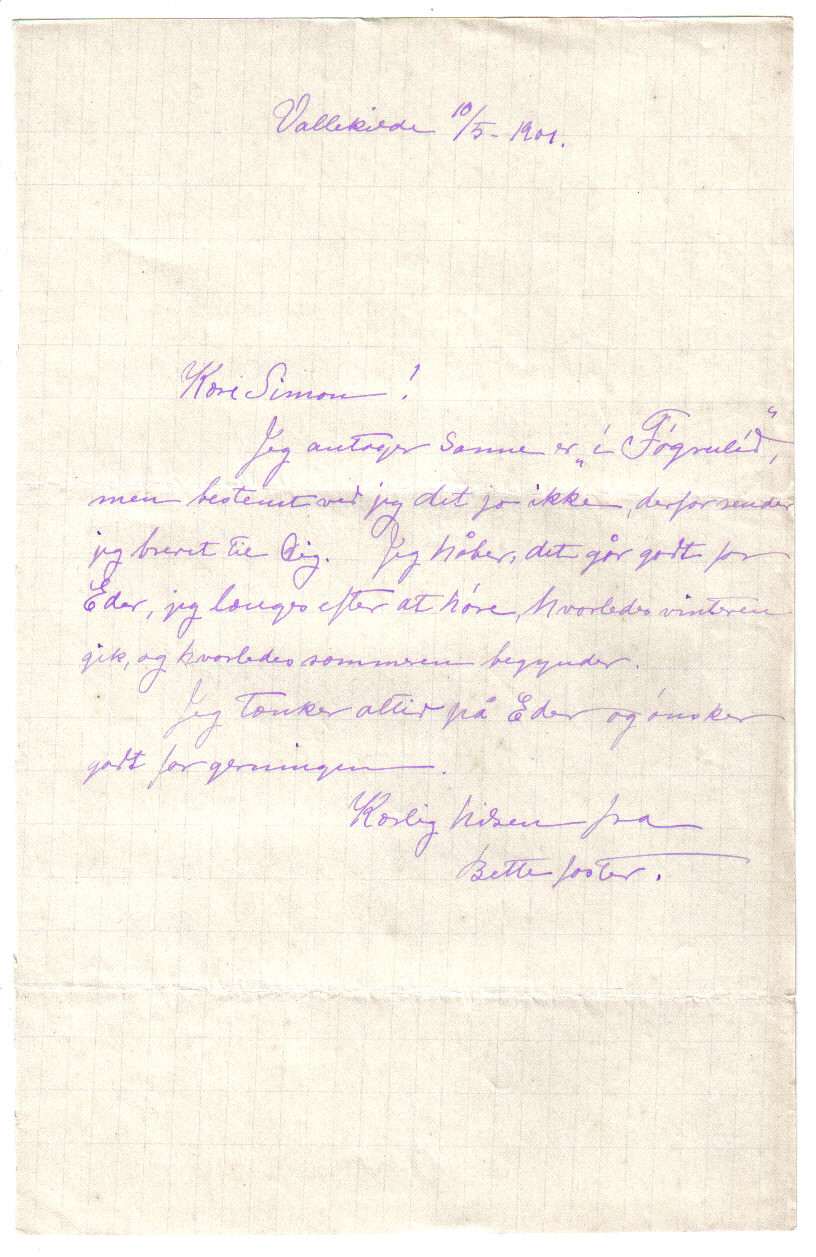 Vallekilde 10/5 - 1901.
Kære Simon!
Jeg antager Sanne er „i Føgrulíð“,
men bestemt ved jeg det jo ikke, derfor sender
jeg brevet til Dig. Jeg håber, det går godt for
Eder, jeg længes efter at høre, hvorledes vinteren
gik, og hvorledes sommeren begynder.
Jeg tænker altid på Eder og ønsker
godt for gerningen.
Kærlig hilsen fra
Bette faster.